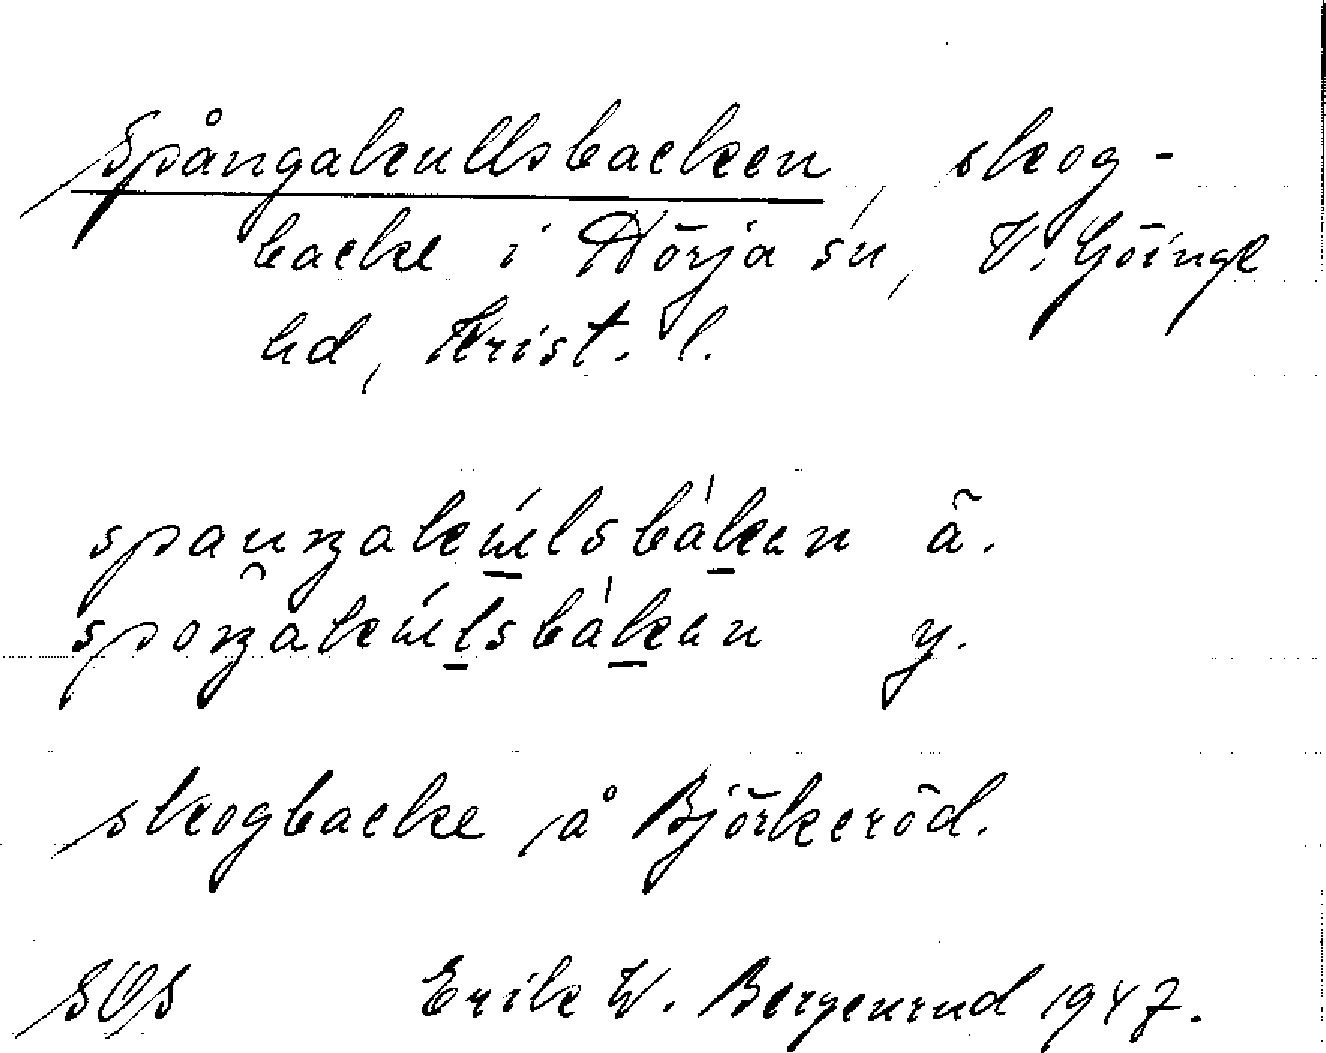 Spångakullsbacken, skog-
backe i Hörja sn, V. Göinge
hd, Krist. l.
spauŋakúlsbàkan ä.
spoŋakúlsbàkan y.
skogbacke å Björkeröd.
SOS Erik W. Bergenrud 1947.